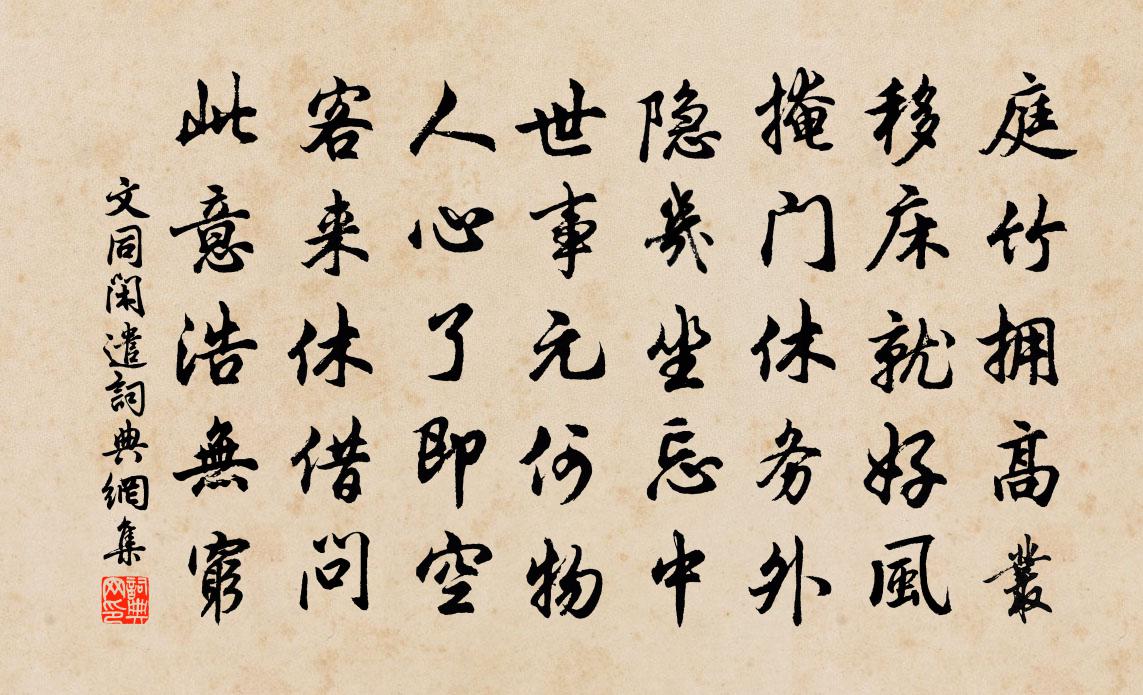 庭竹拥高叢
移床就好風
掩门休务外
隐幾坐忘中
世事元何物
人心了即空
客来休借问
此意浩無窮
文同閑遣詞典網集
詞典网印